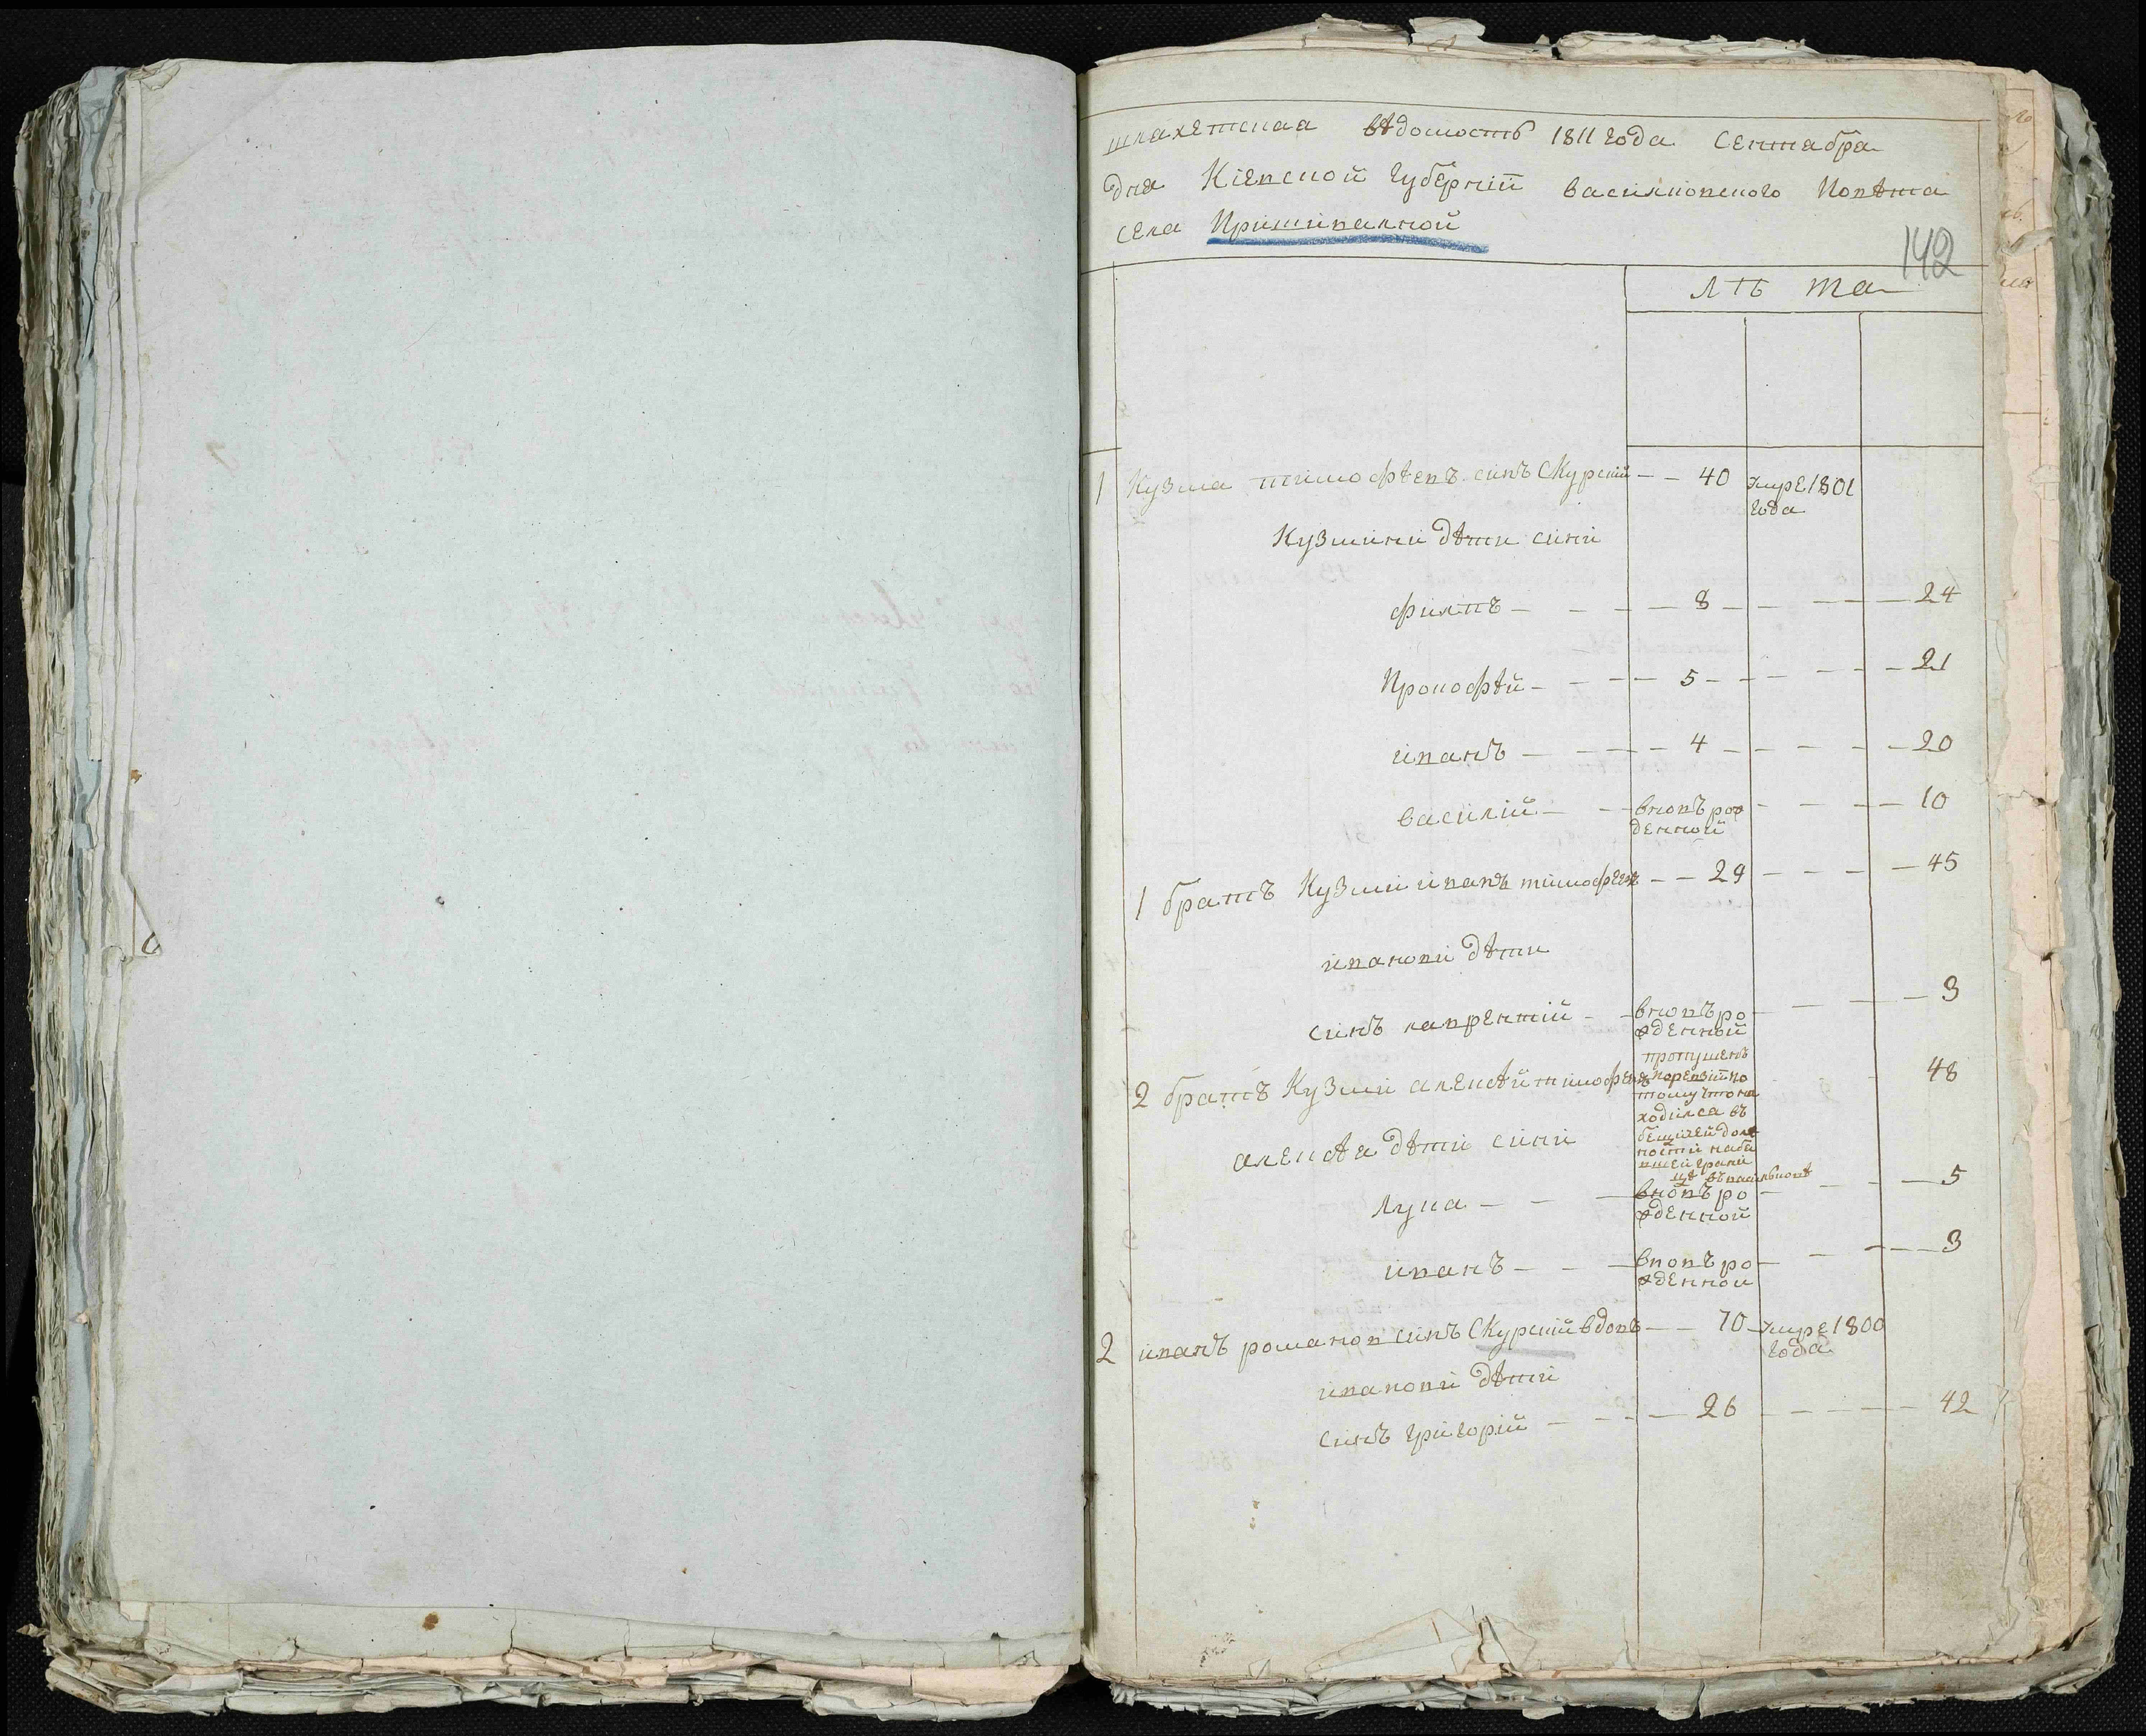 шлахетская вѣдомость 1811 года Сентабра
дня Кіевской Губерніи василковского Повѣта
села Пришивалной
142
лѣ та
1 Кузма тимофѣевъ синъ Скурскій — — 40 умре 1801
года
Кузмини дѣти сини
филпъ — — — — 8 — — — — 24
Прокофѣй — — — — 5 — — — — 21
иванъ — — — — 4 — — — — 20
василій — — вновъ роз — — — 10
денной
1 братъ Кузми иванъ тимофеевъ — — 29 — — — — 45
иванови дѣти
синъ лаврентій — вновъ ро — — — 3
жденной
2 братъ Кузми алексѣй тимофеевъ 48
пропущенъ
поревизіи по
тому что на
ходился въ
алексѣя дѣти сини
лука — — — вновъ ро — — — 5
жденной
иванъ — — — вновъ ро — — — 3
жденной
2 иванъ романов синъ Скурскій вдовъ — — 70 — умре 1800
года
иванови дѣти
синъ григорій — — — — 26 — — — — 42